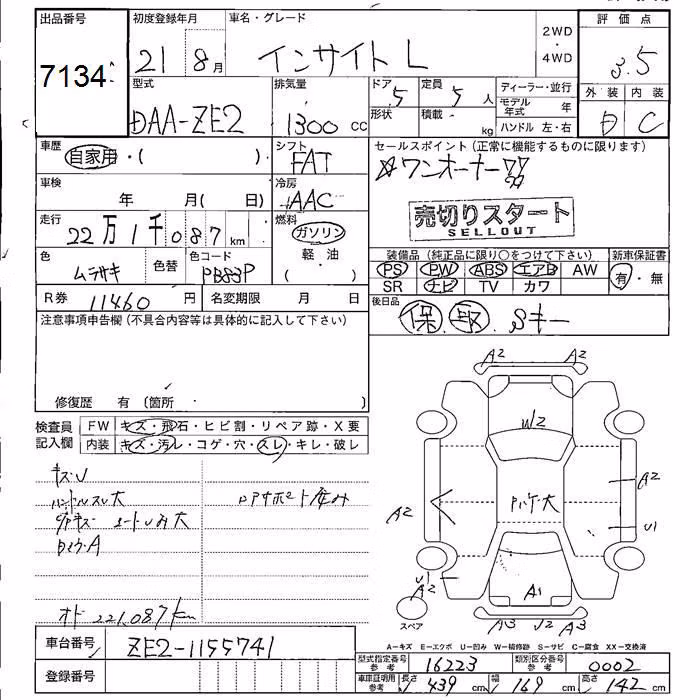 出品番号 初度登録年月 車名・グレード 2WD・4WD 評価点
7134 21 8月 インサイト L 3.5
型式 排気量 ドア 5 定員 5人 ディーラー・並行 外装 内装
DAA-ZE2 1300 cc 形状 積載 kg モデル年式 年 C
ハンドル 左・右
車歴 自家用・( )・ シフト FAT セールスポイント (正常に機能するものに限ります)
☆ワンオーナー
車検 年 月( 日) 冷房 AAC
売切りスタート
SELLOUT
走行 22万1千087km 燃料 ガソリン 軽・油 ( )
色 ムラサキ 色替 色コード PB83P
装備品 (純正品に限り○をつけて下さい) 新車保証書
PS PW ABS エアB AW 有・無
SR ナビ TV カワ
R券 11460 円 名変期限 月 日 後日品
保・取 Sキー
注意事項申告欄 (不具合内容等は具体的に記入して下さい)
修復歴 有 (箇所 )
検査員記入欄 FW キズ・飛石・ヒビ割・リペア跡・X要
内装 キズ・汚レ・コゲ・穴・スレ・キレ・破レ
A2 A2
W2
キズU
ハンドルスレ大
A2
A2
U1
A
U1
A2
A1
オド 221,087km
スペア
A3 U2 A3
A=キズ E=エクボ U=凹み W=補修跡 S=サビ C=腐食 XX=交換済
車台番号 ZE2-1155741
型式指定番号参考 16223 類別区分番号参考 0002
登録番号
車庫証明用参考 長さ 439cm 幅 169cm 高さ 142cm